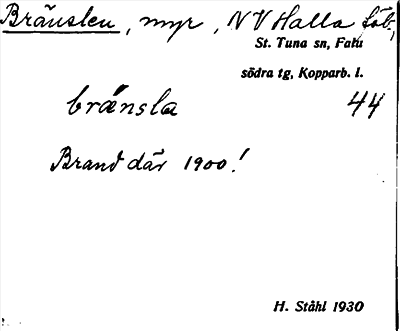 Bränslen, myr, NV Halla fäb.,
St. Tuna sn, Falu
södra tg, Kopparb. l.
brä́nsla 44
Brand där 1900!
H. Ståhl 1930